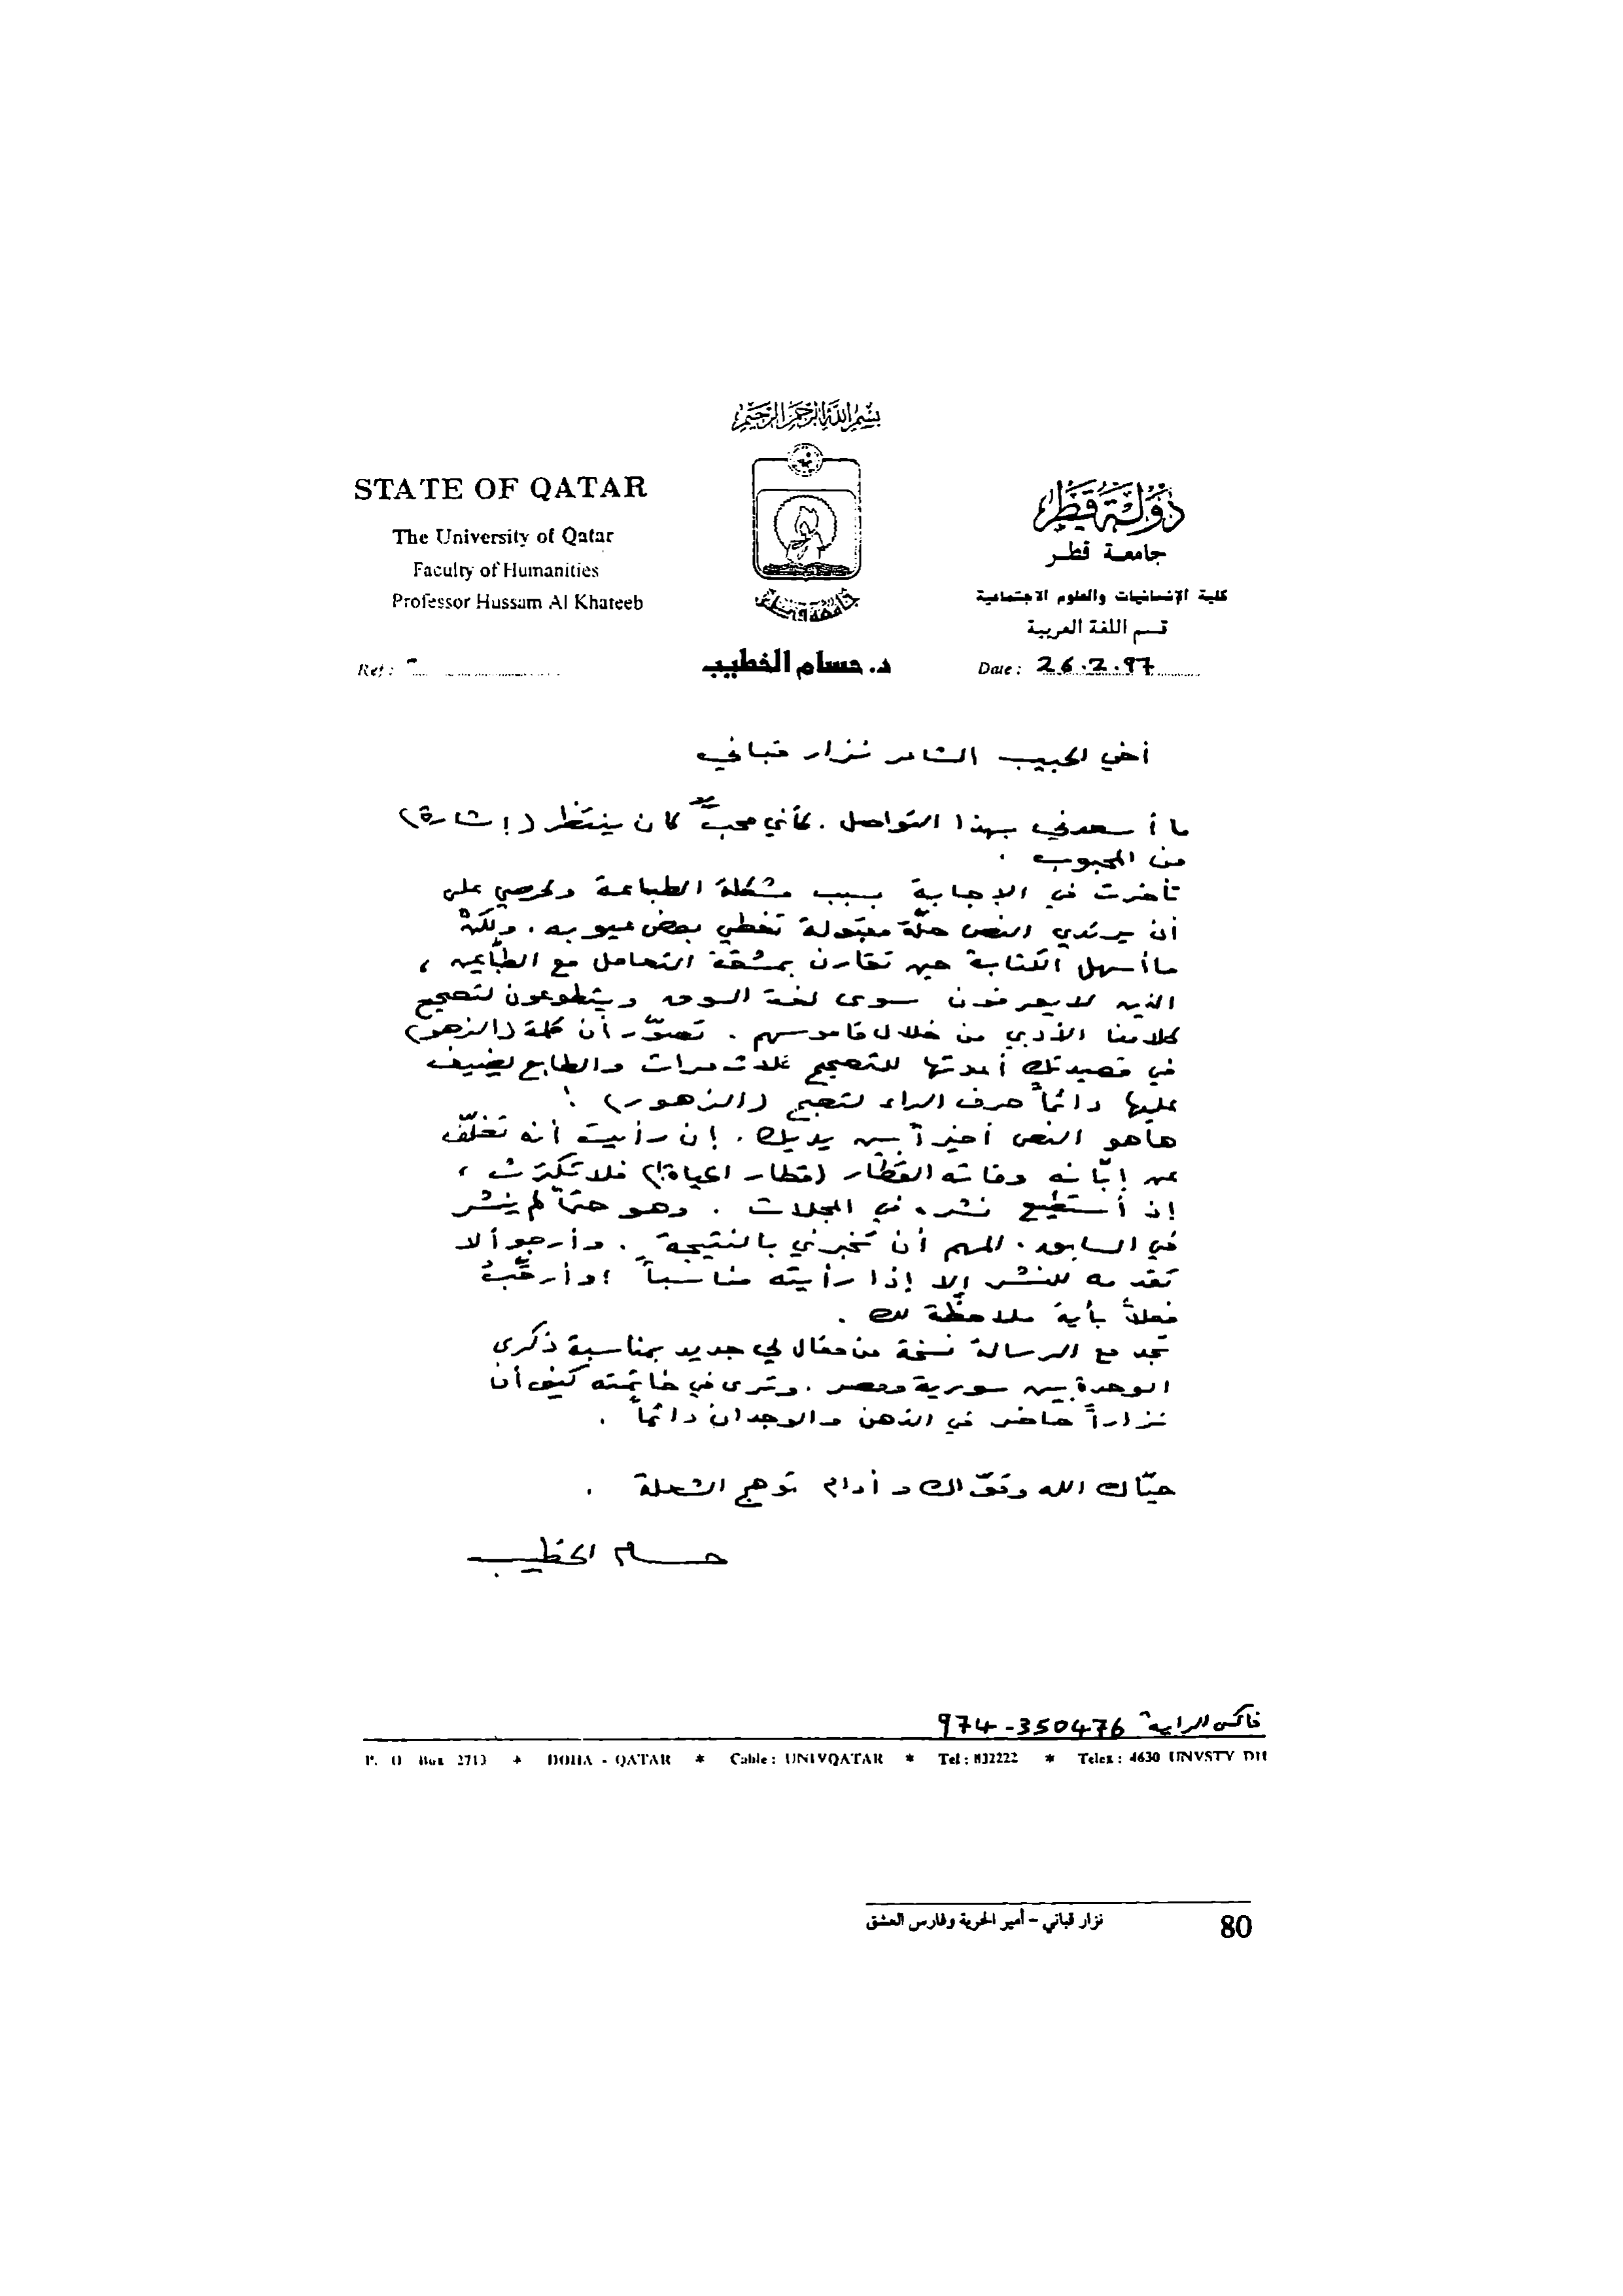 بسم الله الرحمن الرحيم
STATE OF QATAR
The University of Qatar
Faculty of Humanities
Professor Hussam Al Khateeb
Ref :
جامعة قطر
د. حسام الخطيب
دولة قطر
جامعة قطر
كلية الإنسانيات والعلوم الاجتماعية
قسم اللغة العربية
Date : 26.2.97
أخي الحبيب الشاعر نزار قباني
ما أسعدني بهذا التواصل . كأني محبٌّ كان ينتظر (إشارة)
من المحبوب .
تأخرت في الإجابة بسبب مشكلة الطباعة ولحرصي على
أن يرتدي النص حلّة مقبولة تغطي بعض عيوبه . ولكنْ
ما أسهل الكتابة حين تقارن بمشقة التعامل مع الطبّاعين ،
الذين لا يعرفون سوى لغة السوق ويتطوعون لتصحيح
كلامنا الأدبي من خلال قاموسهم . تصوّر أن كلمة (الزهو)
في قصيدتك أعدتها للتصحيح ثلاث مرات والطابع يضيف
عليها دائماً حرف الراء لتصبح (الزهور) !
ها هو النص أخيراً بين يديك . إن رأيت أنه تخلّف
عن إبّانه وفاته القطار (قطار الحياة!) فلا تكترث ،
إذ أستطيع نشره في المجلات . وهو حتماً لم ينشر
في السابق . المهم أن تخبرني بالنتيجة . وأرجو ألا
تقدمه للنشر إلا إذا رأيته مناسباً ! وأرحّبُ
فعلاً بأية ملاحظة لك .
تجد مع الرسالة نسخة من مقال لي جديد بمناسبة ذكرى
الوحدة بين سورية ومصر . وترى في خاتمته كيف أن
نزاراً حاضر في الذهن والوجدان دائماً .
حيّاك الله وقوّاك وأدام توهج الشعلة .
حسام الخطيب
فاكس الراية 974-350476
P. O Box 2713 * DOHA - QATAR * Cable : UNIVQATAR * Tel : 832222 * Telex : 4630 UNVSTY DH
نزار قباني - أمير الحرية وفارس العشق
80